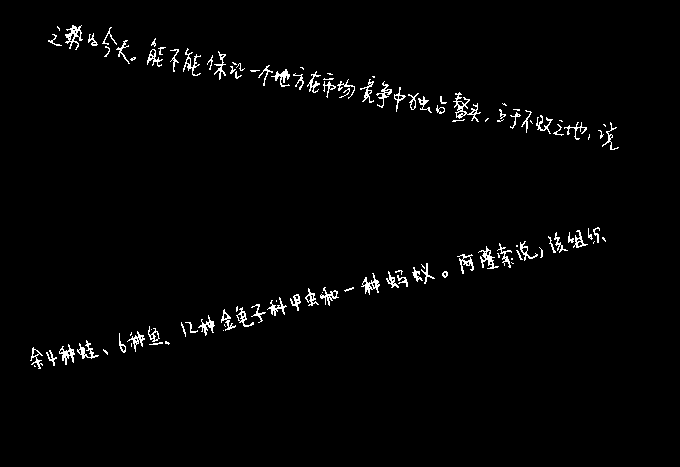 之势的今天。能不能保证一个地方在市场竞争中独占鳌头，立于不败之地，说
余4种蛙、6种鱼、12种金龟子科甲虫和一种蚂蚁。阿隆索说，该组织